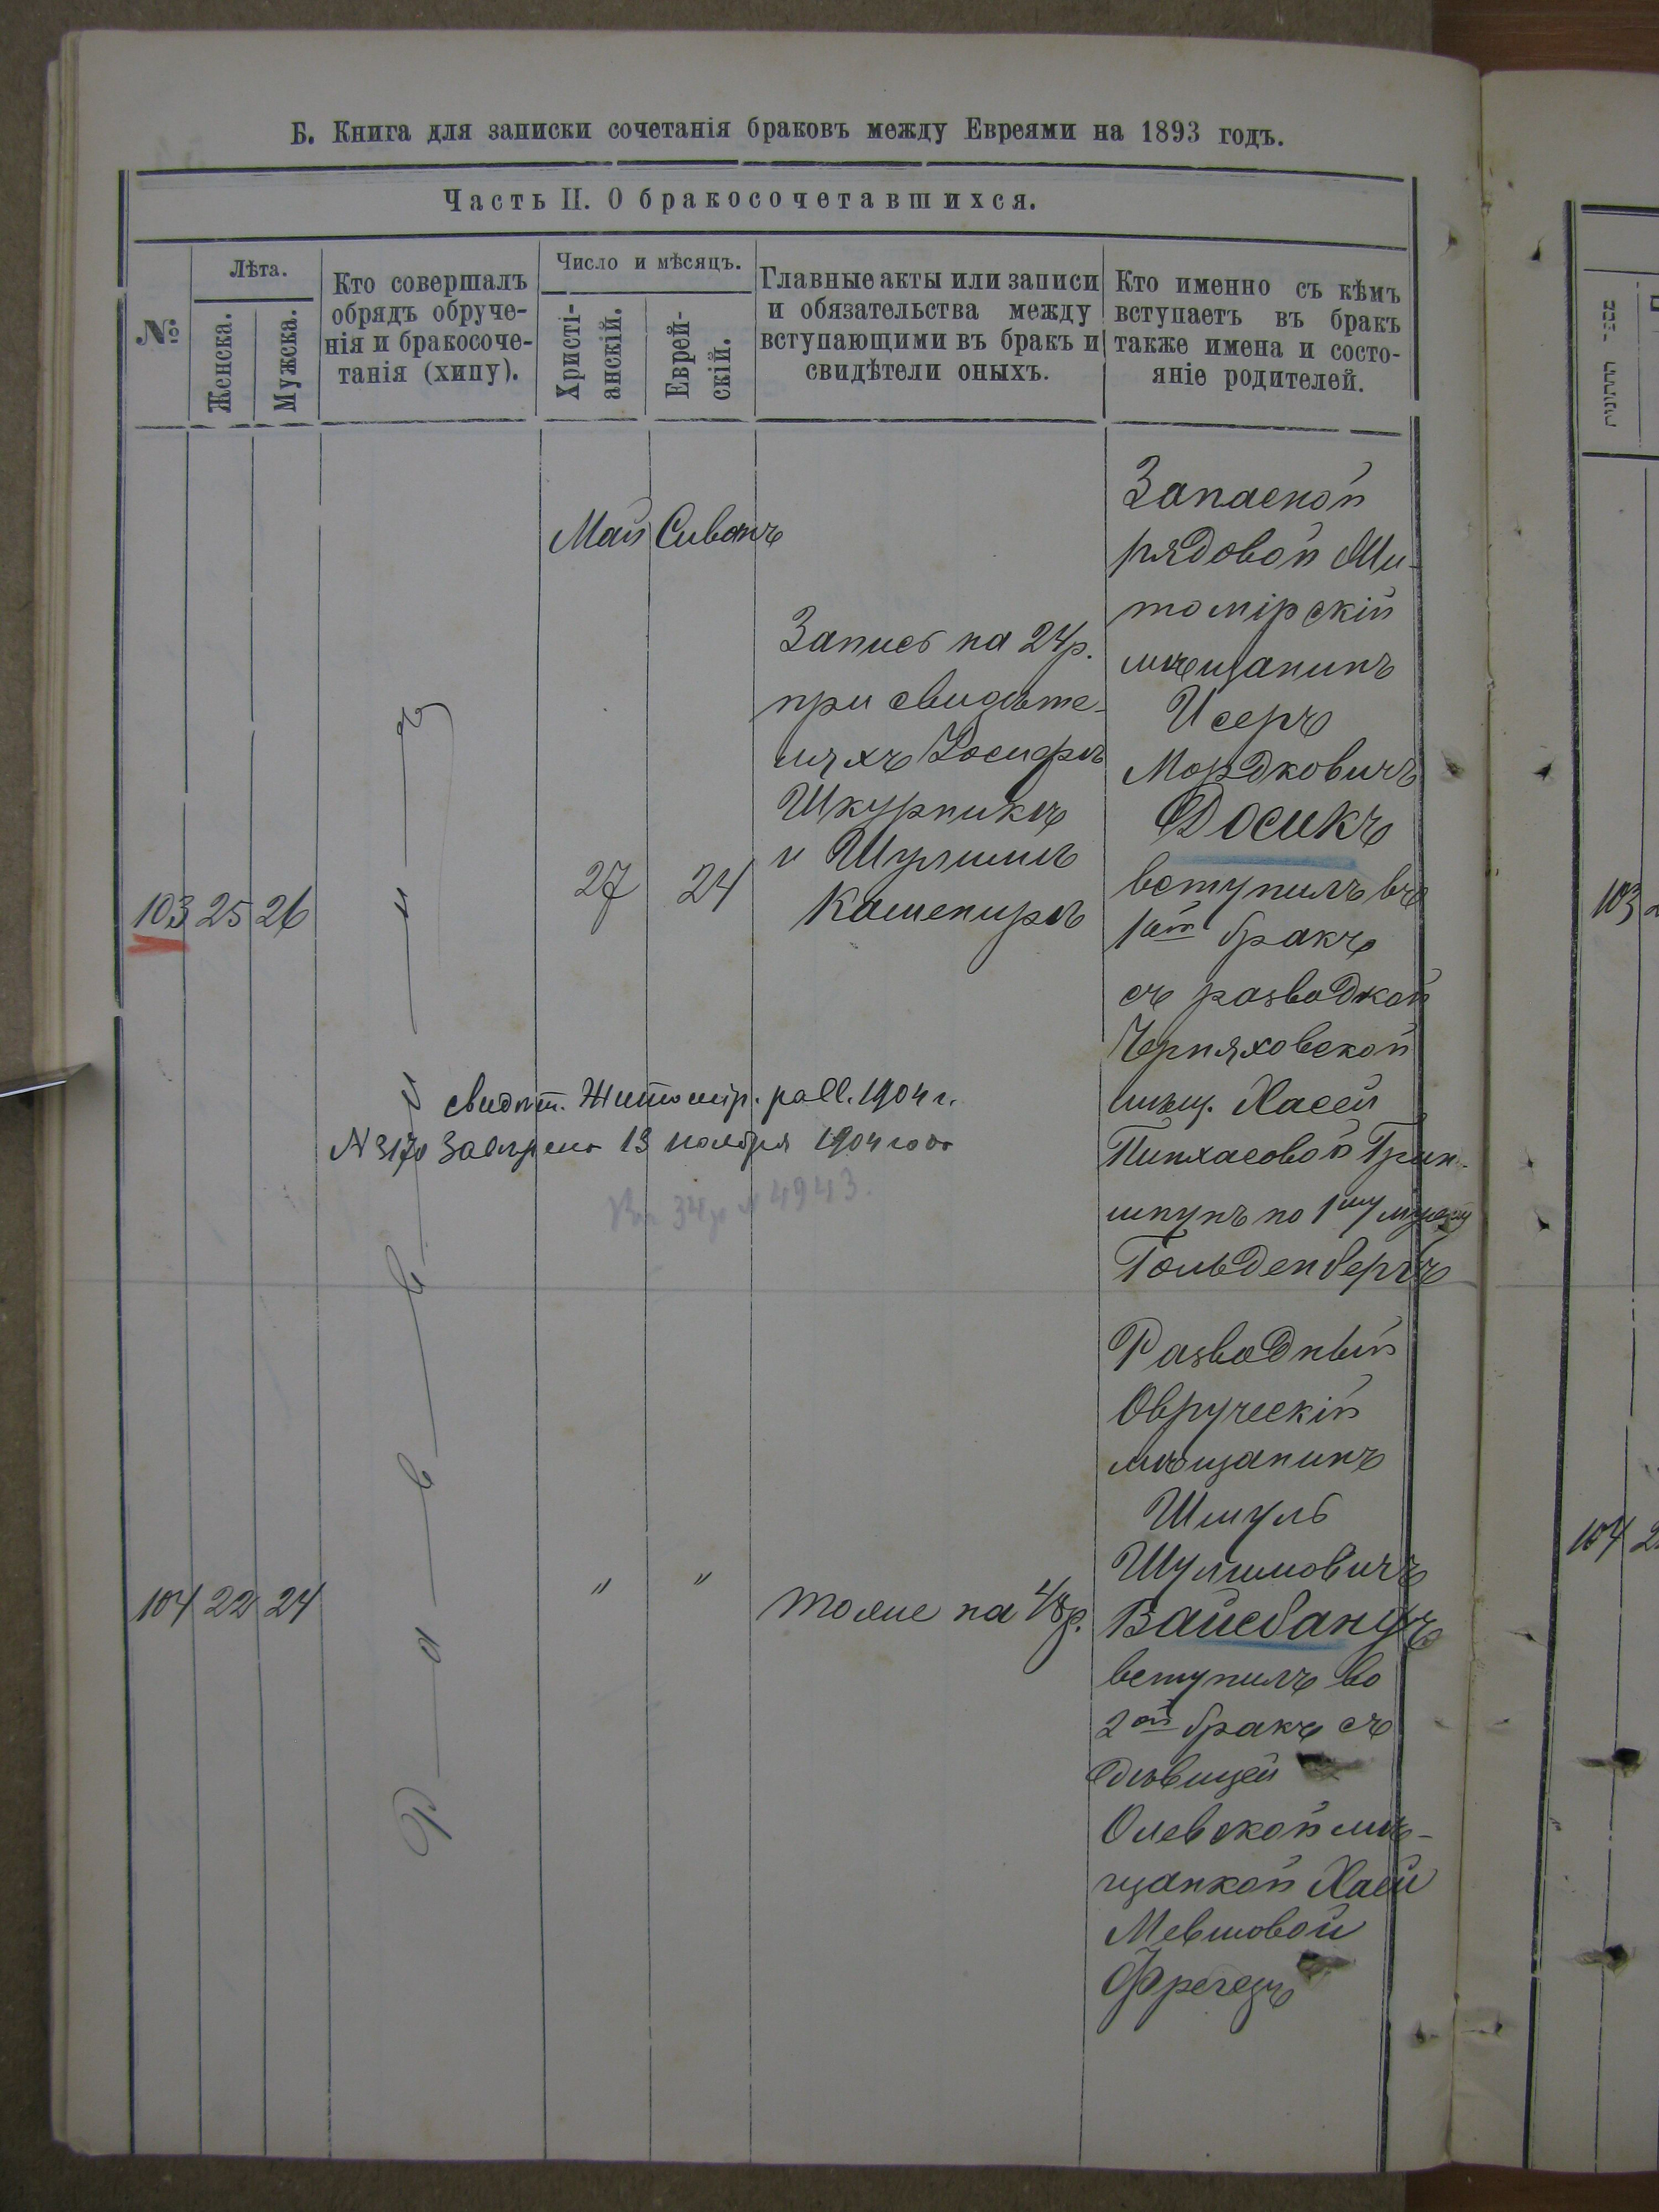 Б. Книга для записки сочетанія браковъ между Евреями на 1893 годъ.
Часть II. О бракосочетавшихся.
№
Лѣта.
Женска.
Мужска.
Кто совершалъ
обрядъ обруче-
нія и бракосоче-
танія (хипу).
Число и мѣсяцъ.
Христі-
анскій.
Еврей-
скій.
Главные акты или записи
и обязательства между
вступающими въ бракъ и
свидѣтели оныхъ.
Кто именно съ кѣмъ
вступаетъ въ бракъ
также имена и состо-
яніе родителей.
103
25
26
Раввинъ
Май
27
Сиванъ
24
Запись на 24 р.
при свидѣте-
ляхъ Іосифъ
Шкурникъ
и Шулимъ
Кашениръ
Запасной
рядовой Жи-
томірскій
мѣщанинъ
Исеръ
Мордковичъ
Фосикъ
вступилъ въ
1ой бракъ
съ разводкой
Черняховской
мѣщ. Хасей
Пинхасовой Грин-
шпунъ по 1му мужу
Гольденбергъ
свидѣт. Житомір. равв. 1904 г.
№ 3170 Завѣрено 13 ноября 1904 года
№ 4943.
104
22
24
"
"
тоже на 48 р.
Разводный
Овручскій
мѣщанинъ
Шмуль
Шулимовичъ
Вайсбандъ
вступилъ во
2ой бракъ съ
дѣвицей
Олевской мѣ-
щанкой Хаей
Мевшовой
103
104